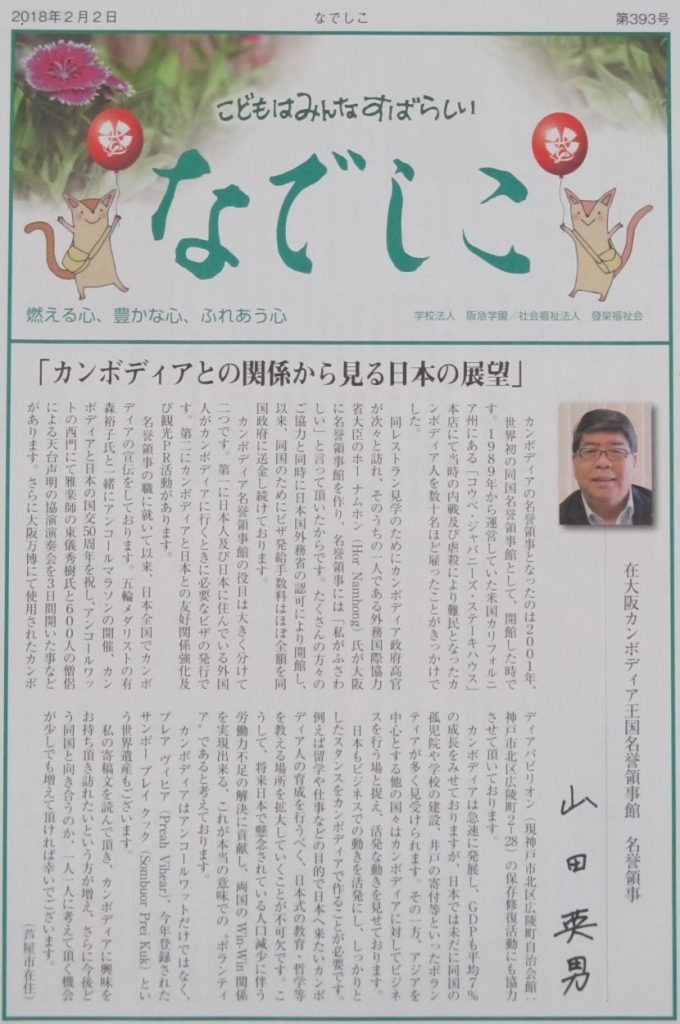 2018年2月2日
なでしこ
第393号
こどもはみんなすばらしい
なでしこ
燃える心、豊かな心、ふれあう心
学校法人 阪急学園/社会福祉法人 發榮福祉会
「カンボディアとの関係から見る日本の展望」
在大阪カンボディア王国名誉領事館 名誉領事
山田英男
カンボディアの名誉領事となったのは2001年、
世界初の同国名誉領事館として、開館した時で
す。1989年から運営していた米国カリフォルニ
ア州にある「コウベ・ジャパニーズ・ステーキハウス」
本店にて当時の内戦及び虐殺により難民となったカ
ンボディア人を数十名ほど雇ったことがきっかけで
した。
同レストラン見学のためにカンボディア政府高官
が次々と訪れ、そのうちの一人である外務国際協力
省大臣のホー ナムホン(Hor Namhong)氏が大阪
に名誉領事館を作り、名誉領事には「私がふさわ
しい」と言って頂いたからです。たくさんの方々の
ご協力と同時に日本国外務省の認可により開館し、
以来、同国のためにビザ発給手数料はほぼ全額を同
国政府に送金し続けております。
カンボディア名誉領事館の役目は大きく分けて
二つです。第一に日本人及び日本に住んでいる外国
人がカンボディアに行くときに必要なビザの発行で
す。第二にカンボディアと日本との友好関係強化及
び観光PR活動があります。
名誉領事の職に就いて以来、日本全国でカンボ
ディアの宣伝をしております。五輪メダリストの有
森裕子氏と一緒にアンコールマラソンの開催、カン
ボディアと日本の国交50周年を祝し、アンコールワッ
トの西門にて雅楽師の東儀秀樹氏と600人の僧侶
による天台声明の協演演奏会を3日間開いた事など
があります。さらに大阪万博にて使用されたカンボ
ディアパビリオン(現神戸市北区広陵町自治会館:
神戸市北区広陵町2-28)の保存修復活動にも協力
させて頂いております。
カンボディアは急速に発展し、GDPも平均7%
の成長をみせておりますが、日本では未だに同国の
孤児院や学校の建設、井戸の寄付等といったボラン
ティアが多く見受けられます。その一方、アジアを
中心とする他の国々はカンボディアに対してビジネ
スを行う場と捉え、活発な動きを見せております。
日本もビジネスでの動きを活発にし、しっかりと
したスタンスをカンボディアで作ることが必要です。
例えば留学や仕事などの目的で日本へ来たいカンボ
ディア人の育成を行うべく、日本式の教育・哲学等
を教える場所を拡大していくことが不可欠です。こ
うして、将来日本で懸念されている人口減少に伴う
労働力不足の解決に貢献し、両国のWin-Win関係
を実現出来る、これが本当の意味での〝ボランティ
ア〟であると考えております。
カンボディアはアンコールワットだけではなく、
プレア ヴィヒア(Preah Vihear)、今年登録された
サンボー プレイ クック(Sombuor Prei Kuk)とい
う世界遺産もございます。
私の寄稿文を読んで頂き、カンボディアに興味を
お持ち頂き訪れたいという方が増え、さらに今後ど
う同国と向き合うのか、一人一人に考えて頂く機会
が少しでも増えて頂ければ幸いでございます。
(芦屋市在住)